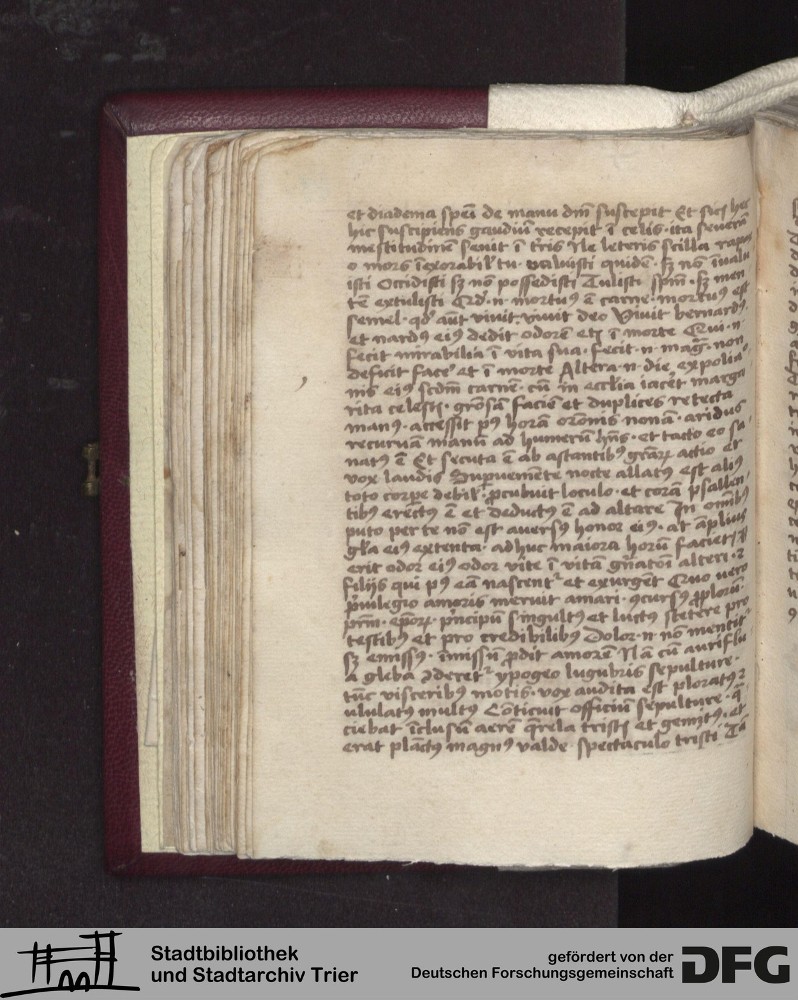 et diadema spei de manu dm̄ suscepit Et sicut
hic suscipiens gaudiū recepit ī celis · ita seuerā
mestitudinē seuit ī tr̄is Ne leteris scilla rapax
o mors īexorabil' tu · valuisti quidē · sꝫ nō īualu
isti Occidisti sꝫ nō possedisti Tulisti sp̄m · sꝫ men
tē extulisti · n · mortuꝰ ē carne · mortuꝰ est
semel · qd' aūt viuit · viuit deo Viuit bernardꝰ
et nardꝰ eiꝰ dedit odorē etꝫ ī morte Qui · n ·
fecit mirabilia ī vita sua · fecit · n · mag̃ · non
deficit face' et ī morte Altera · n · die expolia
nis eiꝰ scdm̄ carnē · cū in ecclīa iacēt marga
rita celestꝭ · grosā faciē et duplices retecta
manꝰ · accessit pꝰ horā or̄onis nonā · aridus
recuruā manū ad humerū hn̄s · et tacto eo sa
natꝰ ē Et secuta ē ab astantibꝰ gr̄arꝝ actio et
vox laudis Supueniēte nocte allatꝰ est aliꝰ
toto corpe debil' · ꝓcubuit loculo · et corā psallen
tibꝰ erectꝰ ē et deductꝰ ē ad altare In omībꝰ
puto per te nō est auersꝰ honor eiꝰ · at āplius
gl̄a eiꝰ extenta · adhuc maiora horū facietꝭ
erit odor eiꝰ odor vite ī vitā gn̄atoī alteri · ⁊
filijs qui pꝰ eā nascent᷑ et exurgēt Quo vero
p̄uilegio amoris meruit amari · ꝯcursꝰ pplorū ·
pr̄m · ep̄orꝝ · p̄ncipū singultꝰ et luctꝰ stetere pro
testibꝰ et pro credibilibꝰ Dolor · n · nō mentit᷑
sꝫ emissꝰ · īmissū ꝓdit amorē Nā cū auriflu
a gleba ꝯderet᷑ ypogeo lugubris sepulture ·
tūc visceribꝰ motis · vox audita est ploratꝰ ⁊
ululatꝰ multꝰ Cōticuit officiū sepulture · q̄
ciebat īclusū aerē q̄rela tristꝭ et gemitꝰ · et
erat planctꝰ magnꝰ valde · spectaculo tristi Tā
Stadtbibliothek
und Stadtarchiv Trier
gefördert von der
Deutschen Forschungsgemeinschaft
DFG